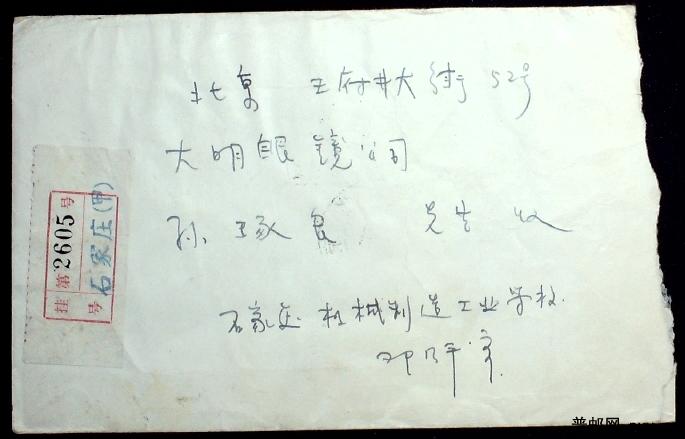 北京 王府井大街 52号
大明眼镜公司
孙 琢良 先生 收
石家庄 机械制造工业学校
邓
挂 第 2605 号
石家庄(甲)
号
普邮网